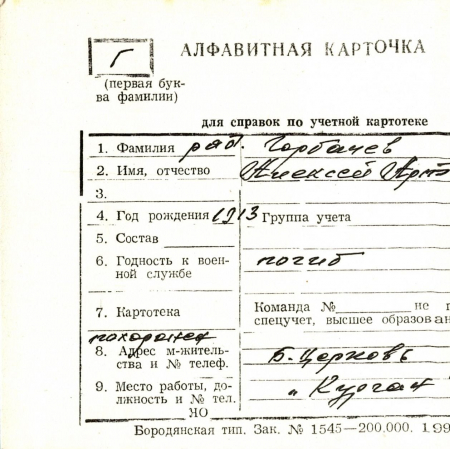 Г
АЛФАВИТНАЯ КАРТОЧКА
(первая бук-
ва фамилии)
для справок по учетной картотеке
1. Фамилия ряд. Горбачев
2. Имя, отчество Алексей Арт
3.
4. Год рождения 1913 Группа учета
5. Состав
6. Годность к воен- погиб
ной службе
7. Картотека Команда № не п
спецучет, высшее образован
похоронен
8. Адрес м-житель- Б-Церковь
ства и № телеф.
9. Место работы, до- „Курган"
лжность и № тел.
ЯО
Бородянская тип. Зак. № 1545—200,000. 199